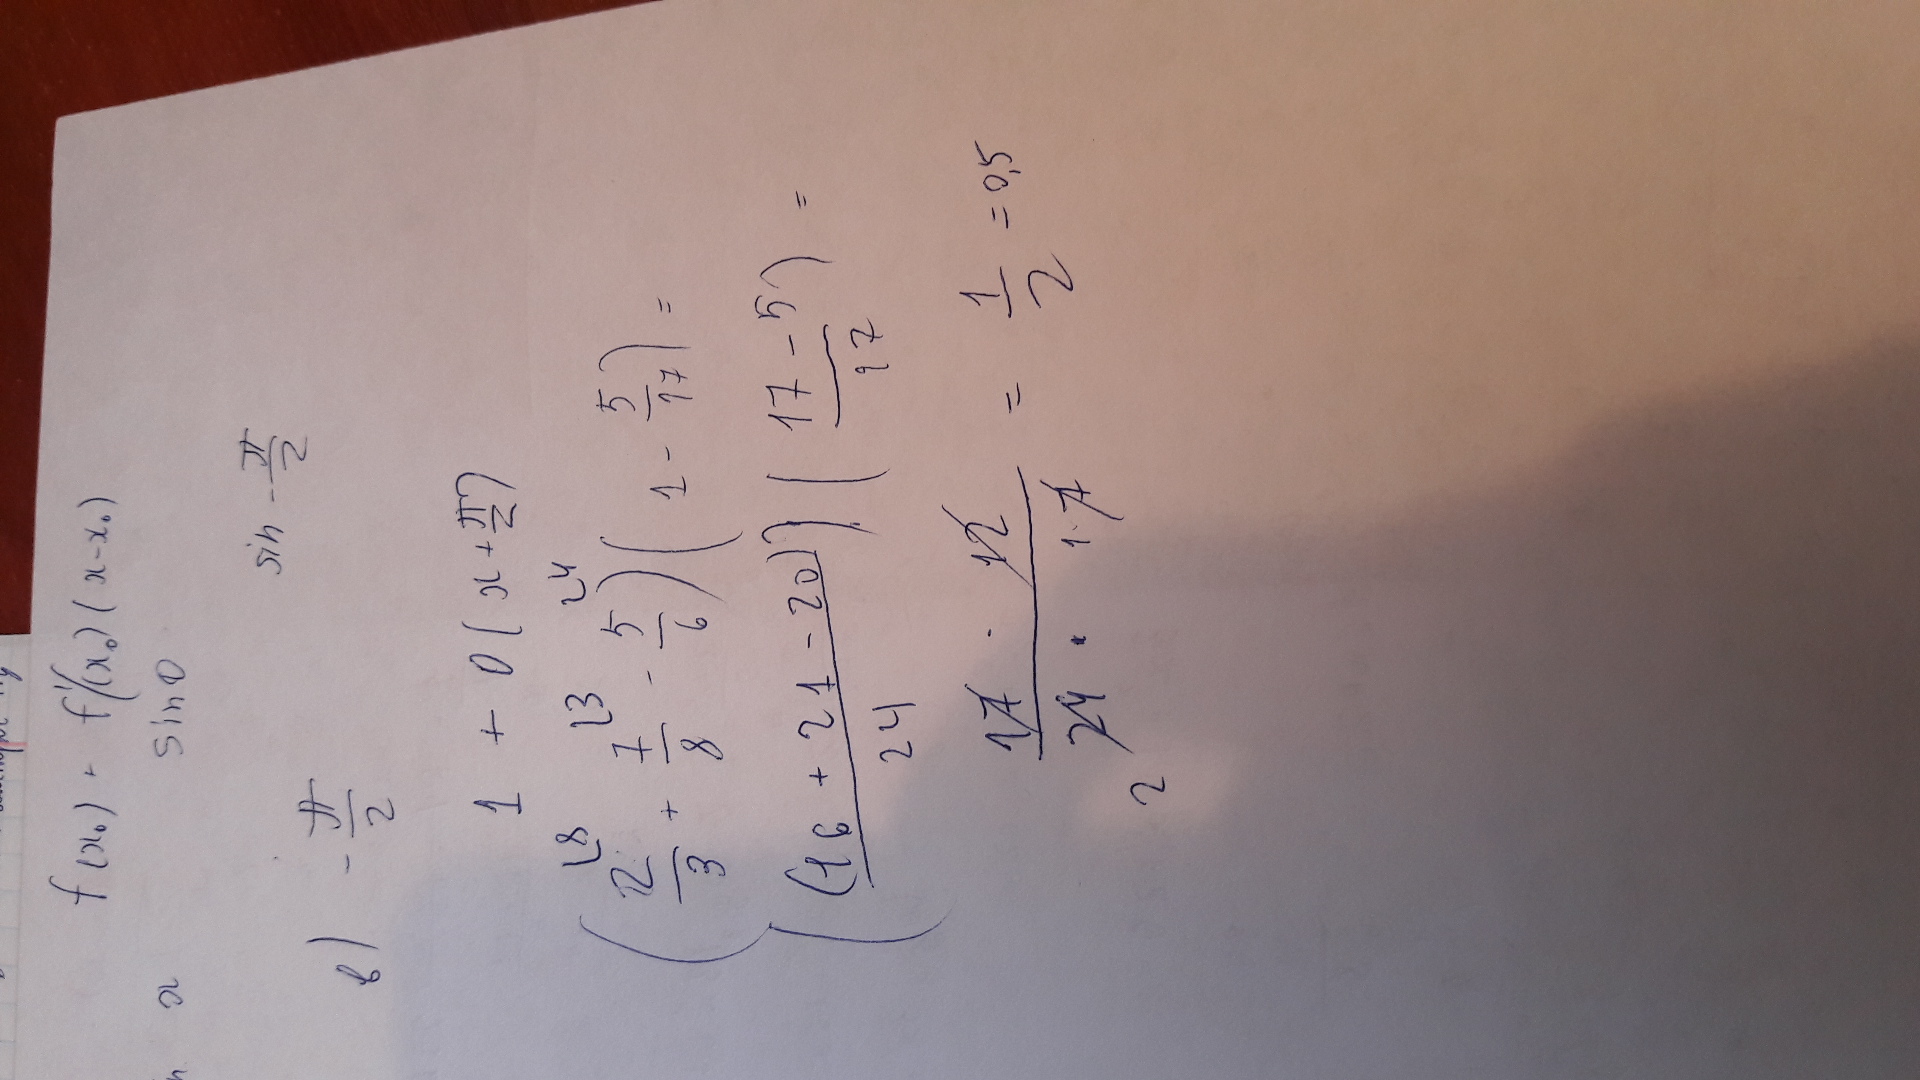 f(x₀) + f'(x₀)(x-x₀)
x sin0
sin -π/2
в) -π/2
1 + 0(x+π/2)
(2/3 + 7/8 - 5/6)(1 - 5/17) =
((16 + 21 - 20)/24)((17 - 5)/17) =
(17 · 12)/(24 · 17) = 1/2 = 0,5
2